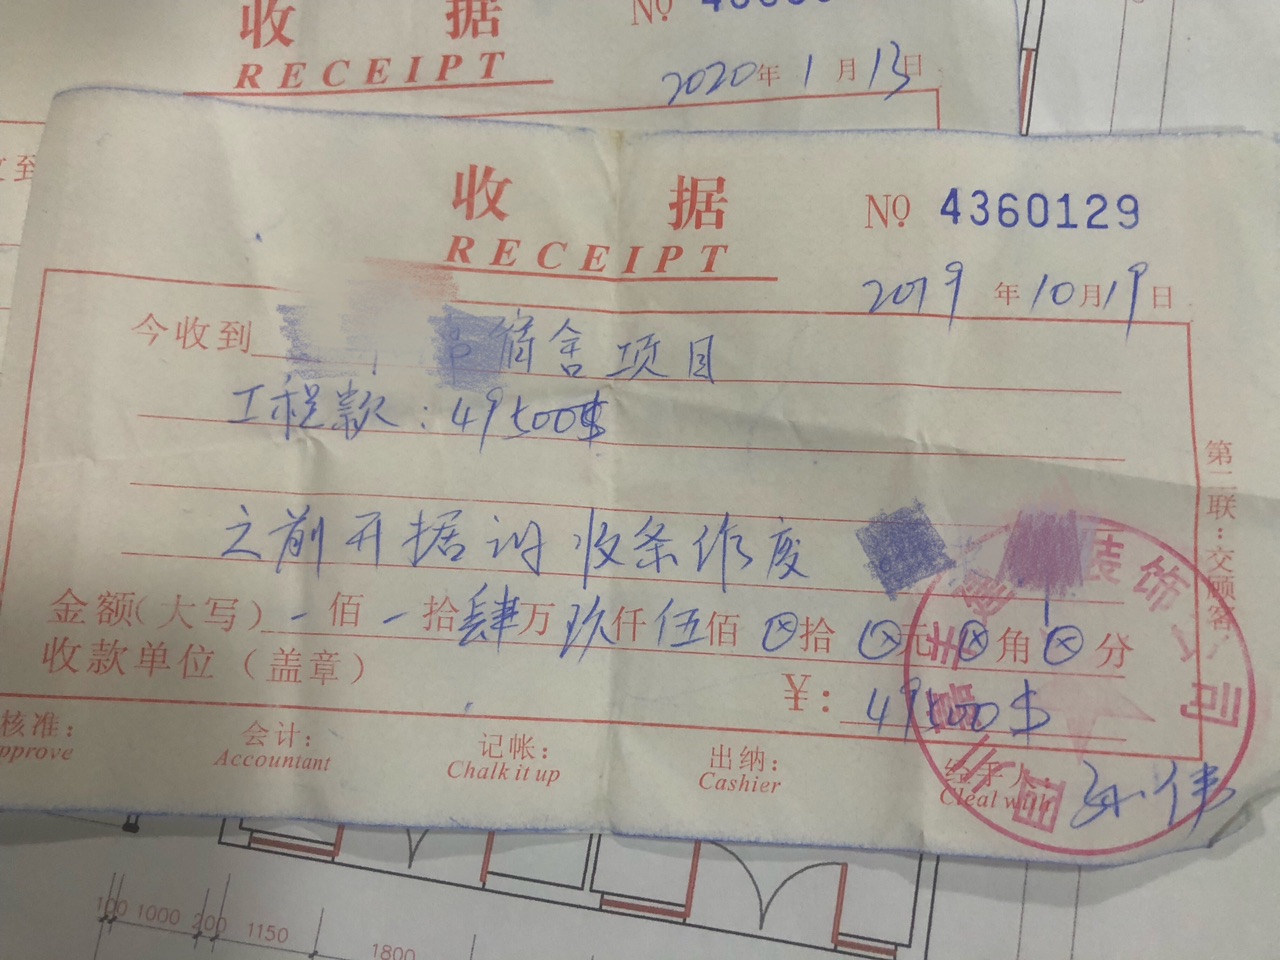 收 据
RECEIPT
2020年1月13日
收 据
RECEIPT
№ 4360129
2019年10月19日
今收到 宿舍项目
工程款：49500$
之前开据的收条作废
金额(大写) - 佰 - 拾肆万玖仟伍佰⊗拾⊗元⊗角⊗分
收款单位（盖章）
￥：49500$
核准：
会计：
记帐：
出纳：
经手人
pprove
Accountant
Chalk it up
Cashier
Cleal with
孙伟
第二联：交顾客
装饰公司
100 1000 200 1150
1800